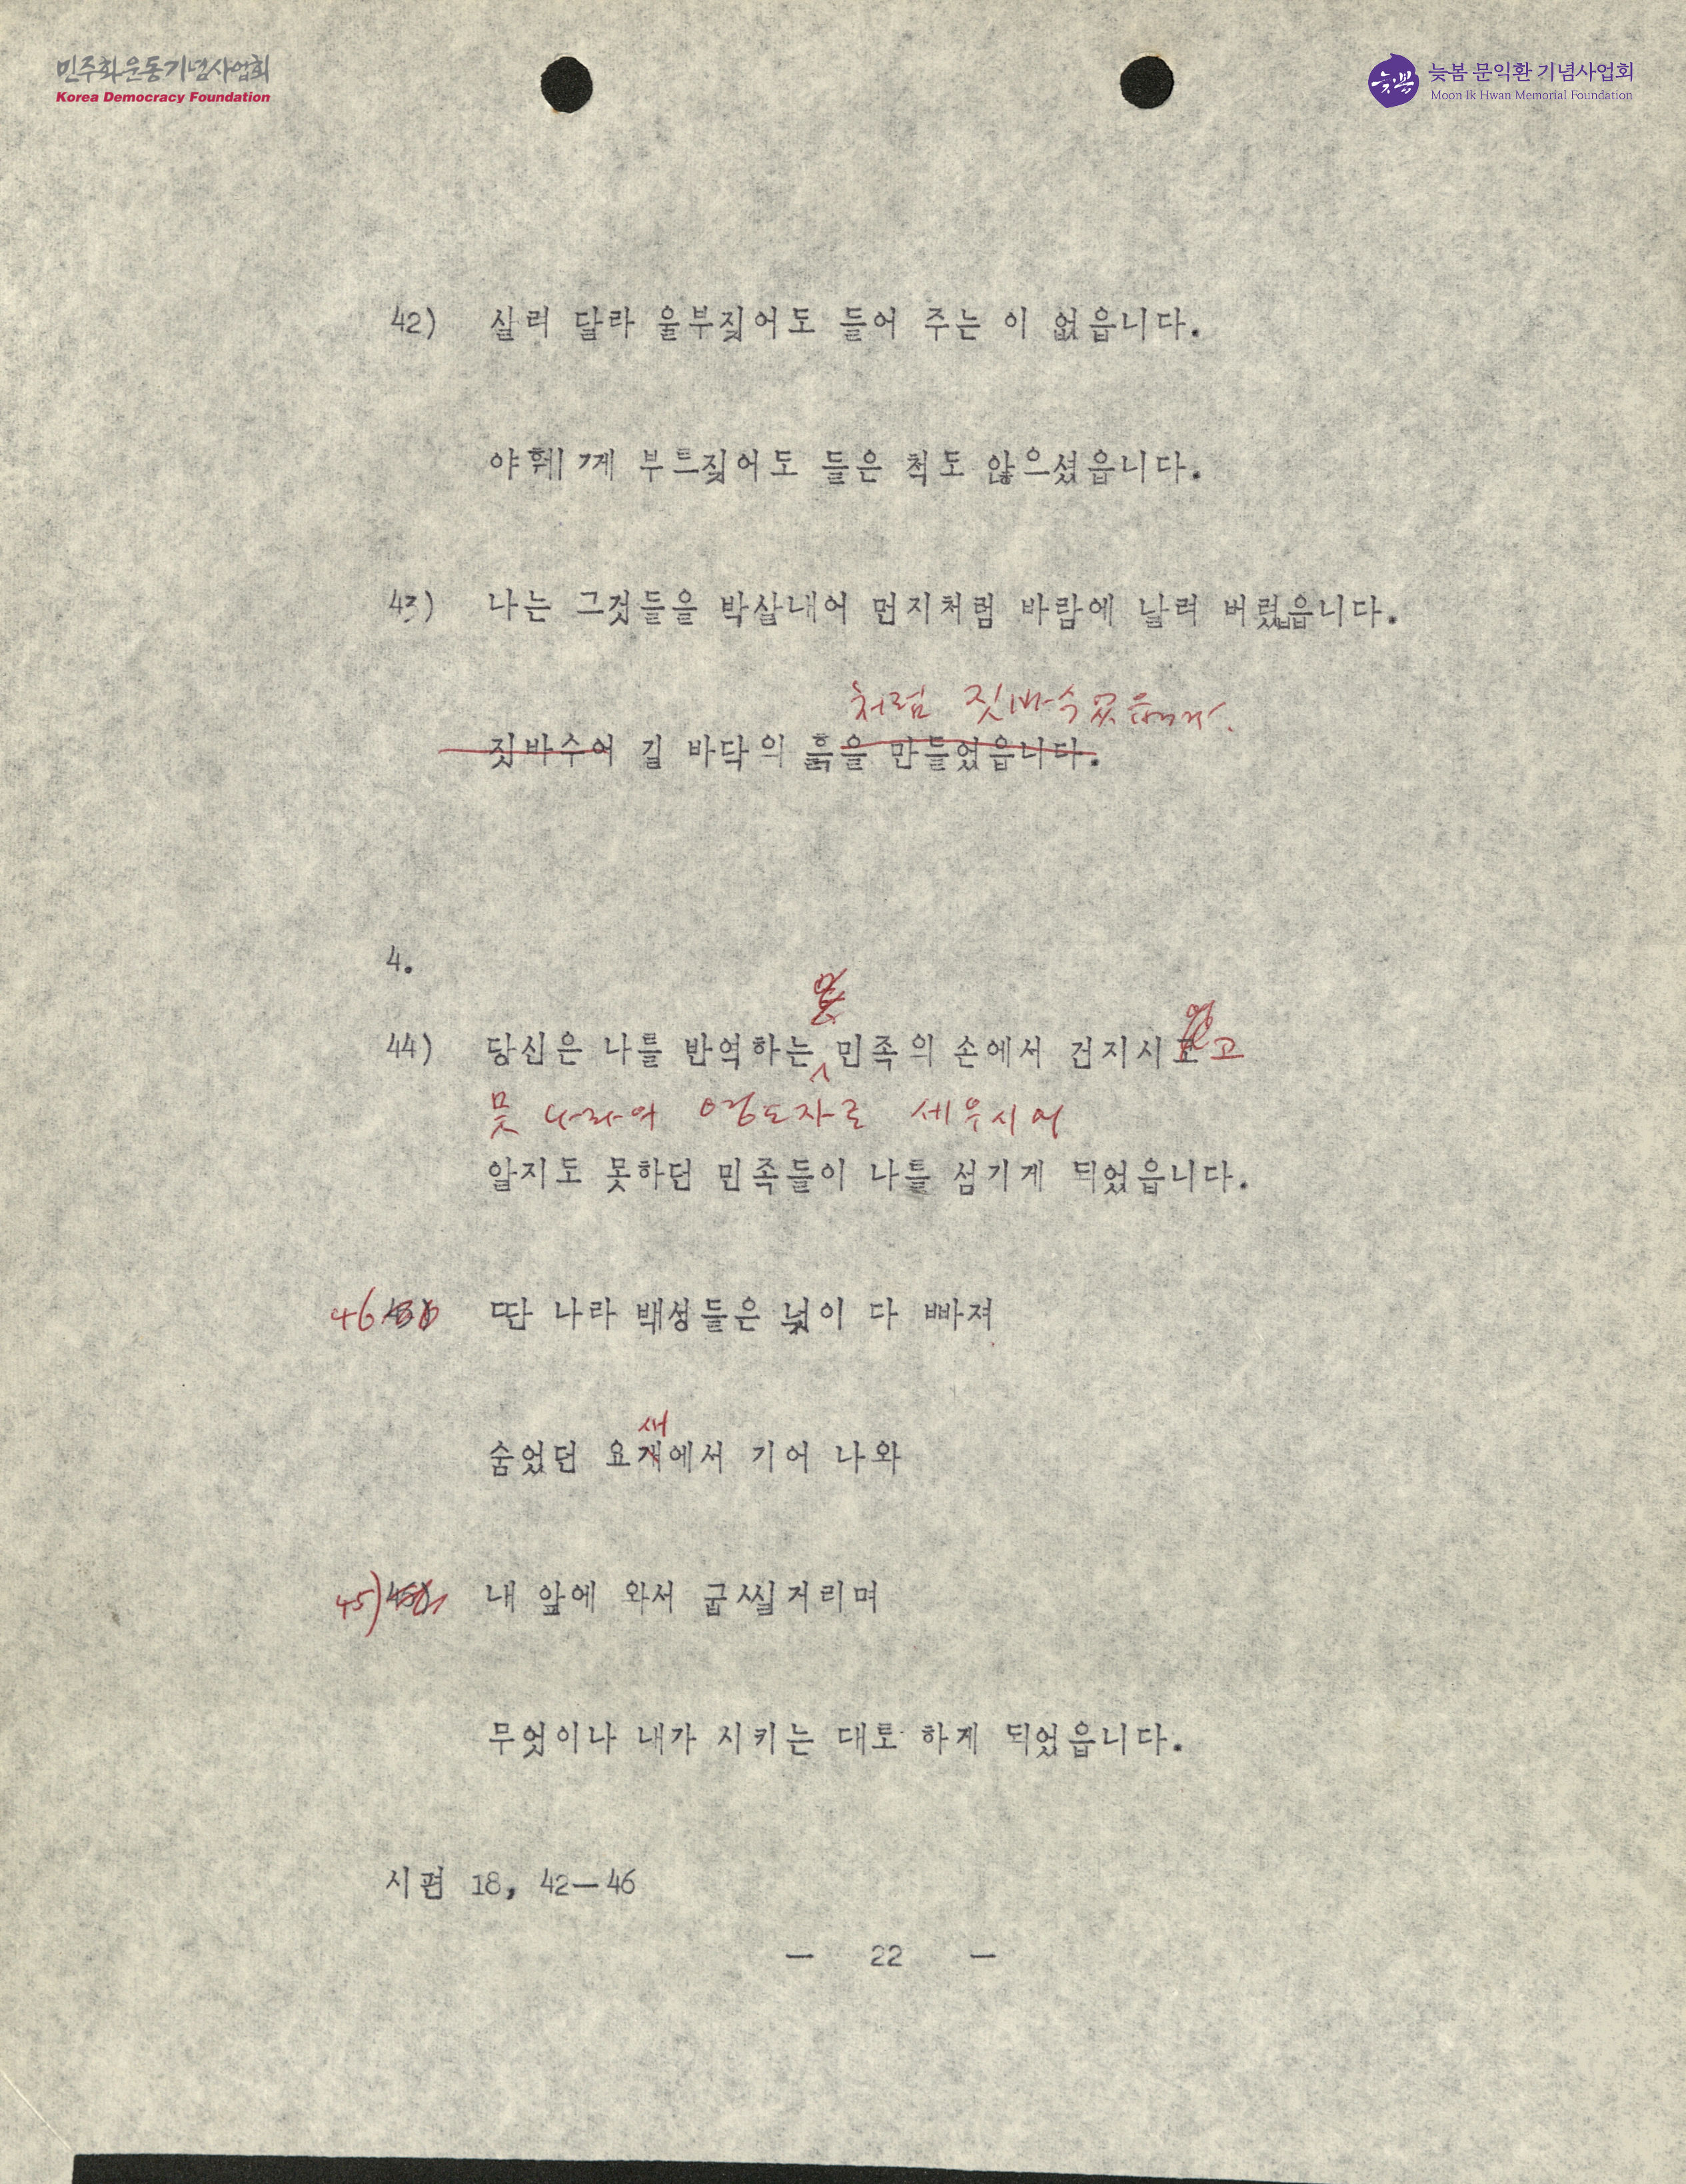 민주화운동기념사업회
Korea Democracy Foundation
늦봄
늦봄 문익환 기념사업회
Moon Ik Hwan Memorial Foundation
42) 살려 달라 울부짖어도 들어 주는 이 없읍니다.
야훼께 부르짖어도 들은 척도 않으셨읍니다.
43) 나는 그것들을 박살내어 먼지처럼 바람에 날려 버렸읍니다.
처럼 짓바수었읍니다.
짓바수어 길 바닥의 흙을 만들었읍니다.
4.
44) 당신은 나를 반역하는 민족의 손에서 건지시고
뭇 나라의 영도자로 세우시어
알지도 못하던 민족들이 나를 섬기게 되었읍니다.
46 딴 나라 백성들은 넋이 다 빠져
새
숨었던 요개에서 기어 나와
45) 내 앞에 와서 굽씰거리며
무엇이나 내가 시키는 대로 하게 되었읍니다.
시편 18, 42—46
— 22 —